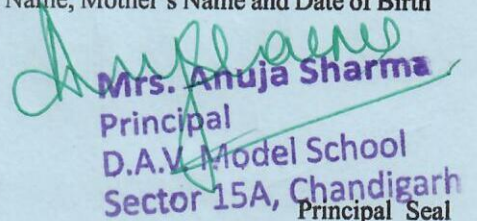 Name, Mother's Name and Date of Birth
Mrs. Anuja Sharma
Principal
D.A.V. Model School
Sector 15A, Chandigarh
Principal Seal